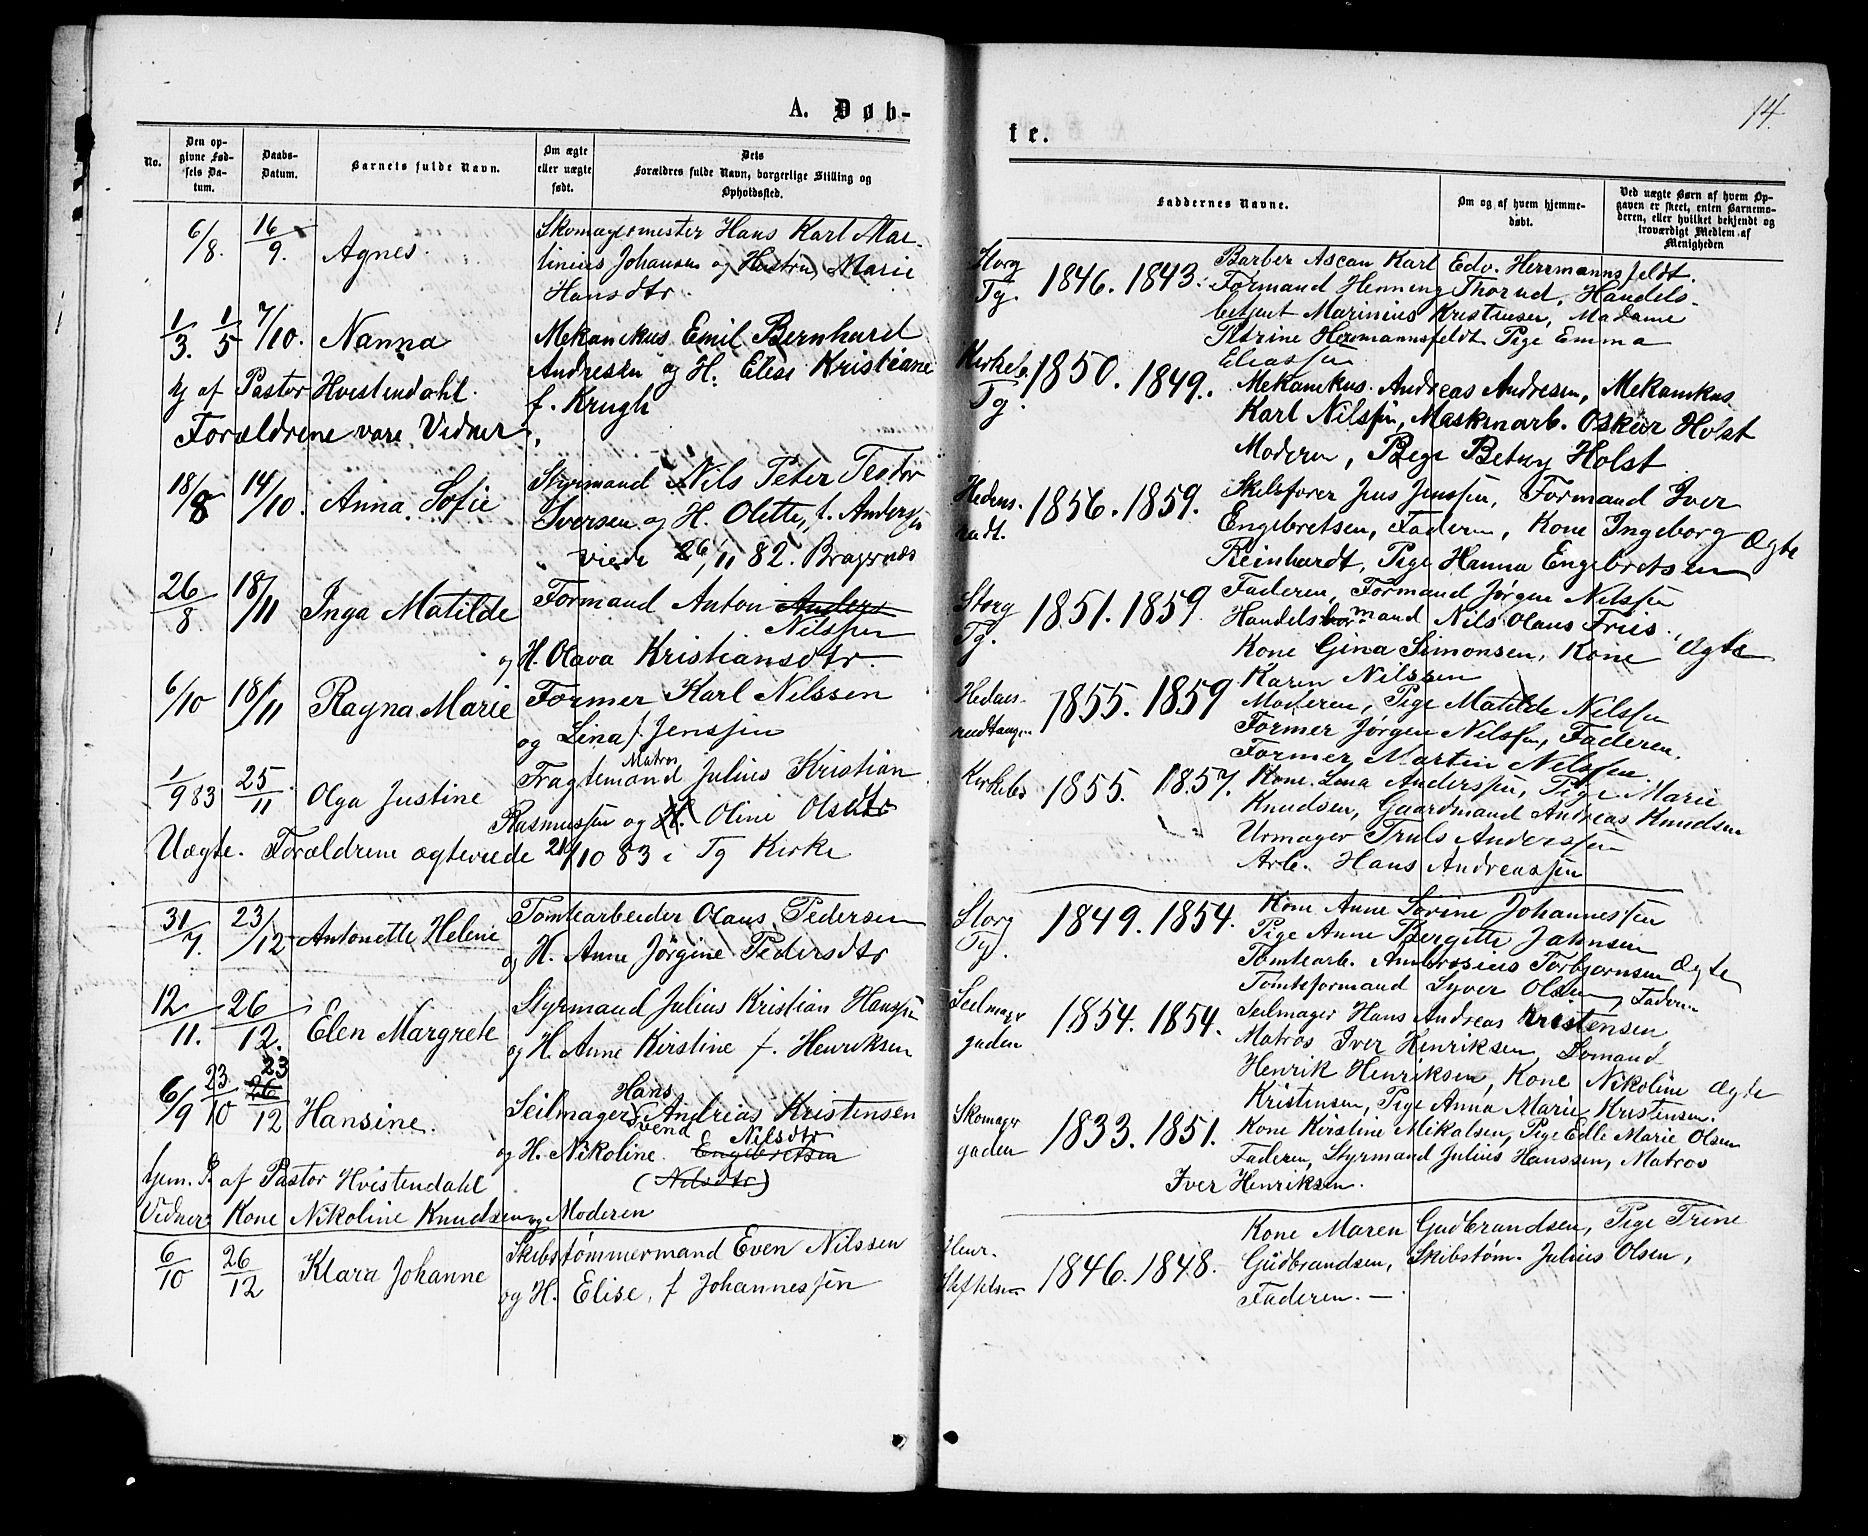 A. Døb-
No.
Den op-
givne Fød-
sels Da-
tum.
Daabs-
Datum.
Barnets fulde Navn.
Om ægte
eller uægte
født.
Dets
Forældres fulde Navn, borgerlige Stilling og
Opholdssted.
6/8. 16/9. Agnes. Skomagermester Hans Karl Mar-
tinius Johansen og Hustru, Marie
Hansdtr.
1/3. 1/5 7/10. Nanna Mekanikus Emil Bernhard
Andresen og H. Elise Kristiane
hj af Pastor Hvistendahl. f. Krugh
Forældrene vare Vidner.
18/8 14/10. Anna Sofie Styrmand Nils Peter Teodor
Iversen og H. Olette, f. Andersen
viede 26/11 82. Bragernæs
26/8. 18/11 Inga Matilde Formand Anton Anders
Nilssen
og H. Olava Kristiansdtr.
6/10 18/11 Ragna Marie Former Karl Nilssen
og Lina f. Jenssen
Matros
1/9 83 25/11 Olga Justine Fragtemand Julius Kristian
Rasmussen og H. Oline Olsdtr
Uægte. Forældrene ægteviede 21/10 83 i Tg Kirke
31/7. 23/12 Antonette Helene Tomtearbeider Olaus Pedersen
og H. Anne Jørgine Pedersdtr
12/11. 26/12. Elen Margrete Styrmand Julius Kristian Hanssen
og H. Anne Kirstine f. Henriksen
23 Hans
6/9 23/10 26/12 Hansine. Seilmager Andreas Kristensen
Svend Nilsdtr
og H. Nikoline. Engebretsen
(Nilsdtr)
hjem. D af Pastor Hvistendahl
Vidner: Kone Nikoline Knudsen og Moderen
6/10 26/12 Klara Johanne Skibstømmermand Even Nilssen
og H. Elise, f Johannessen
14.
te.
Faddernes Navne.
Om og af hvem hjemme-
døbt.
Ved uægte Børn af hvem Op-
gaven er skeet, enten Barnemo-
deren, eller hvilket bekjendt og
troværdigt Medlem af
Menigheden
Storg
Tg. 1846. 1843. Barber Ascan Karl Edv. Herrmannsfeldt.
Formand Henning Thorud, Handels-
betjent Marinius Kristensen, Madame
Petrine Herrmannsfeldt Pige Emma
Eliassen
Kirkeb.
Tg. 1850. 1849. Mekanikus Andreas Andresen, Mekanikus
Karl Nilssen, Maskinarb. Oskar Holst
Moderen, Pige Betzy Holst
Hedens-
rudt. 1856. 1859. Skibsfører Jens Jenssen, Formand Iver
Engebretsen, Faderen, Kone Ingeborg Ægte
Reinhardt, Pige Hanna Engebretsen
Storg
Tg. 1851. 1859 Faderen, Formand Jørgen Nilssen
Handelsmand Nils Olaus Friis.
Kone Gina Simonsen, Kone Ægte
Karen Nilssen
Hedens-
rudtangen 1855. 1859 Moderen, Pige Matilde Nilssen
Former Jørgen Nilssen, Faderen.
Former Martin Nilssen.
Kirkeb 1855. 1857. Kone Lina Anderssen, Pige Marie
Knudsen, Gaardmand Andreas Knudsen
Urmager Truls Anderssen
Arb. Hans Andreassen
Storg
Tg. 1849. 1854. Kone Anne Sorine Johannessen
Pige Anne Bergitte Jahnsen
Tomtearb. Ambrosius Torbjørnsen Ægte
Tomteformand Syver Olsen, Faderen
Seilmagr
gaden 1854. 1854. Seilmager Hans Andreas Kristensen
Matros Iver Henriksen, Sømand
Henrik Henriksen, Kone Nikoline Ægte
Kristensen, Pige Anna Marie Kristensen.
Skomagr
gaden 1833. 1851. Kone Kirstine Mikalsen, Pige Edle Marie Olsen
Faderen, Styrmand Julius Hanssen, Matros
Iver Henriksen.
1846. 1848. Kone Maren Gudbrandsen, Pige Trine
Gudbrandsen, Skibstøm. Julius Olsen,
Faderen. —